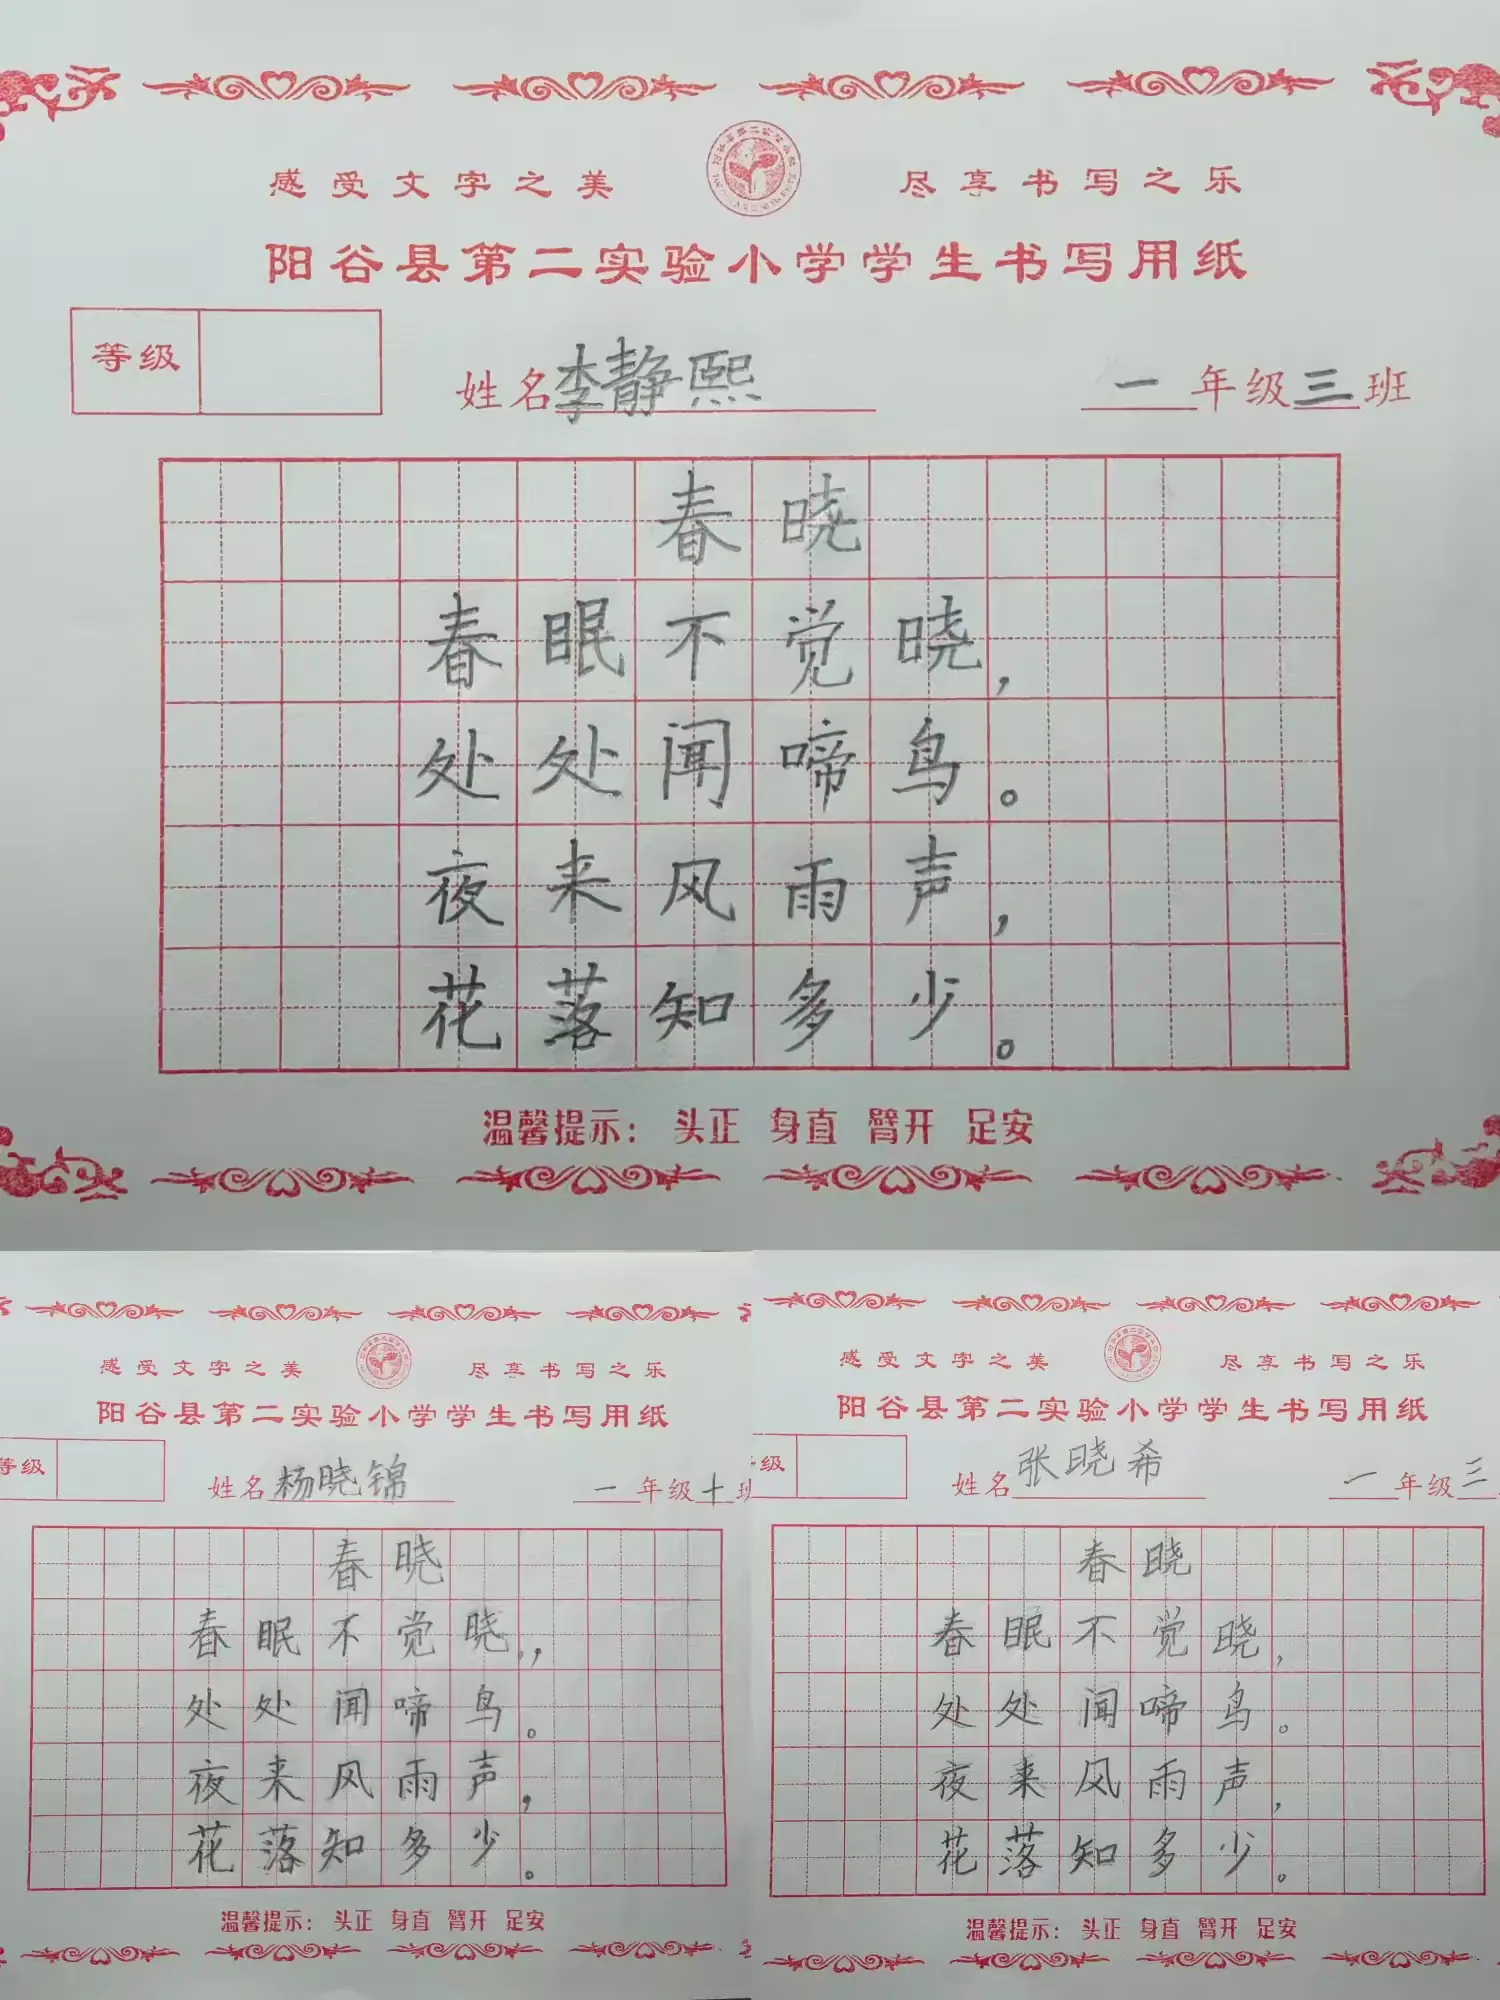 感受文字之美 尽享书写之乐
阳谷县第二实验小学学生书写用纸
等级 姓名 李静熙 一年级三班
春晓
春眠不觉晓，
处处闻啼鸟。
夜来风雨声，
花落知多少。
温馨提示： 头正 身直 臂开 足安
感受文字之美 尽享书写之乐
阳谷县第二实验小学学生书写用纸
等级 姓名 杨晓锦 一年级十班
春晓
春眠不觉晓，，
处处闻啼鸟。
夜来风雨声，
花落知多少。
温馨提示： 头正 身直 臂开 足安
感受文字之美 尽享书写之乐
阳谷县第二实验小学学生书写用纸
级 姓名 张晓希 一年级三
春晓
春眠不觉晓，
处处闻啼鸟。
夜来风雨声，
花落知多少。
温馨提示： 头正 身直 臂开 足安